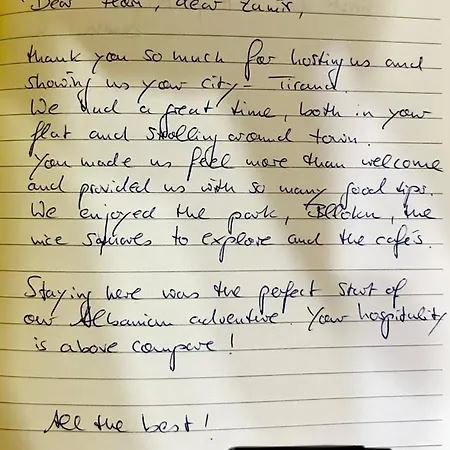 Dear team, dear
thank you so much for hosting us and
showing us your city - Tirana.
We had a great time, both in your
flat and strolling around town.
You made us feel more than welcome
and provided us with so many good tips.
We enjoyed the park, Blloku, the
nice squares to explore and the cafés.
Staying here was the perfect start of
our Albanian adventure. Your hospitality
is above compare!
All the best!